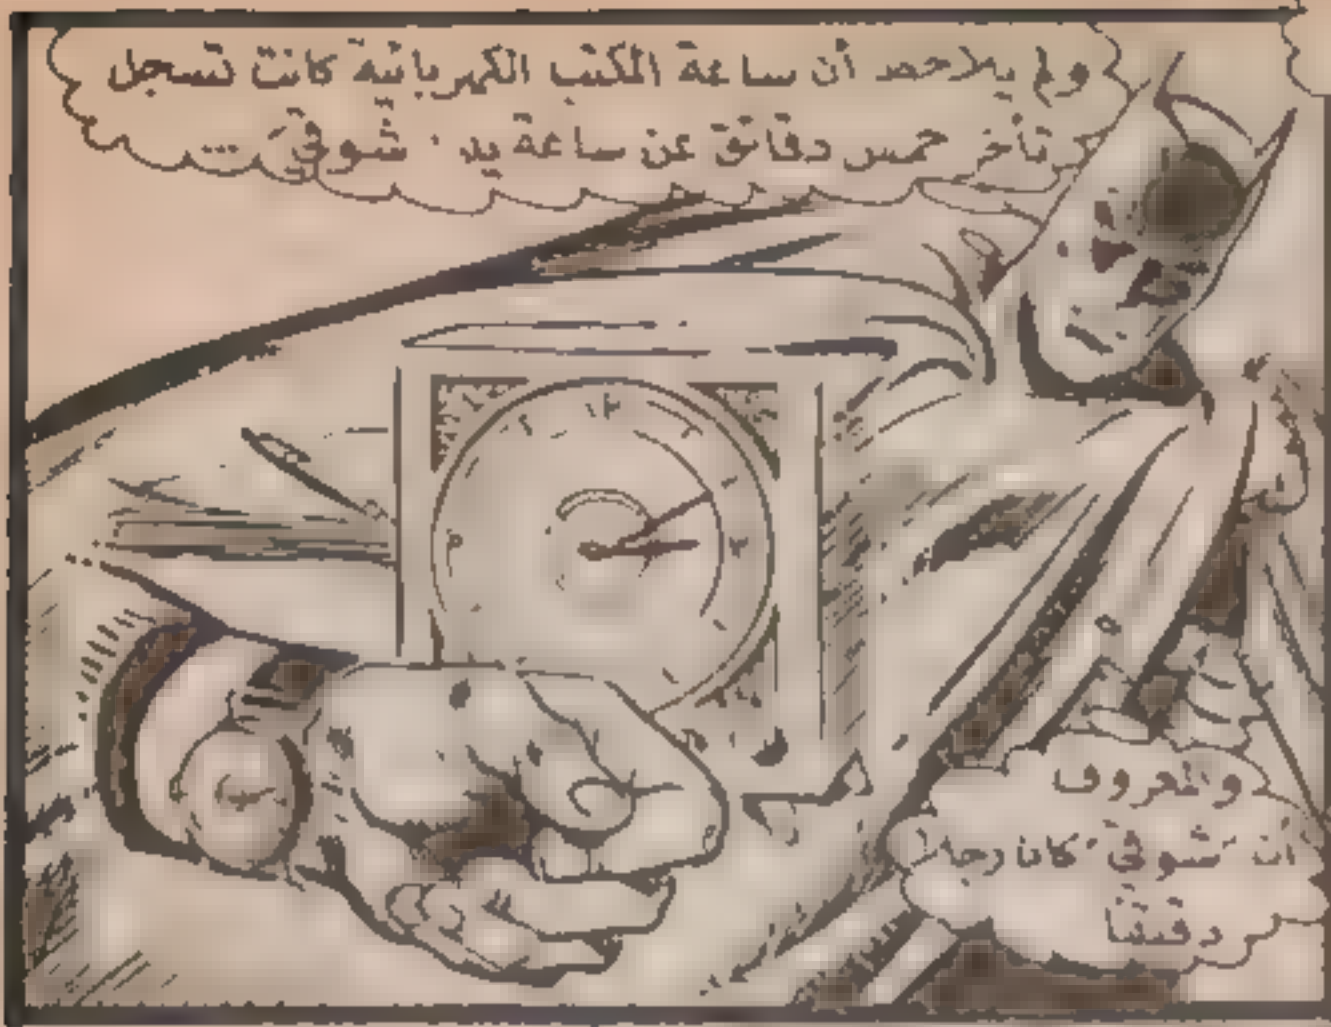 ولم يلاحظ أن ساعة المكتب الكهربائية كانت تسجل
تأخر خمس دقائق عن ساعة يد "شوقي" ...
والمعروف
أن "شوقي" كان رجلا
دقيقًا